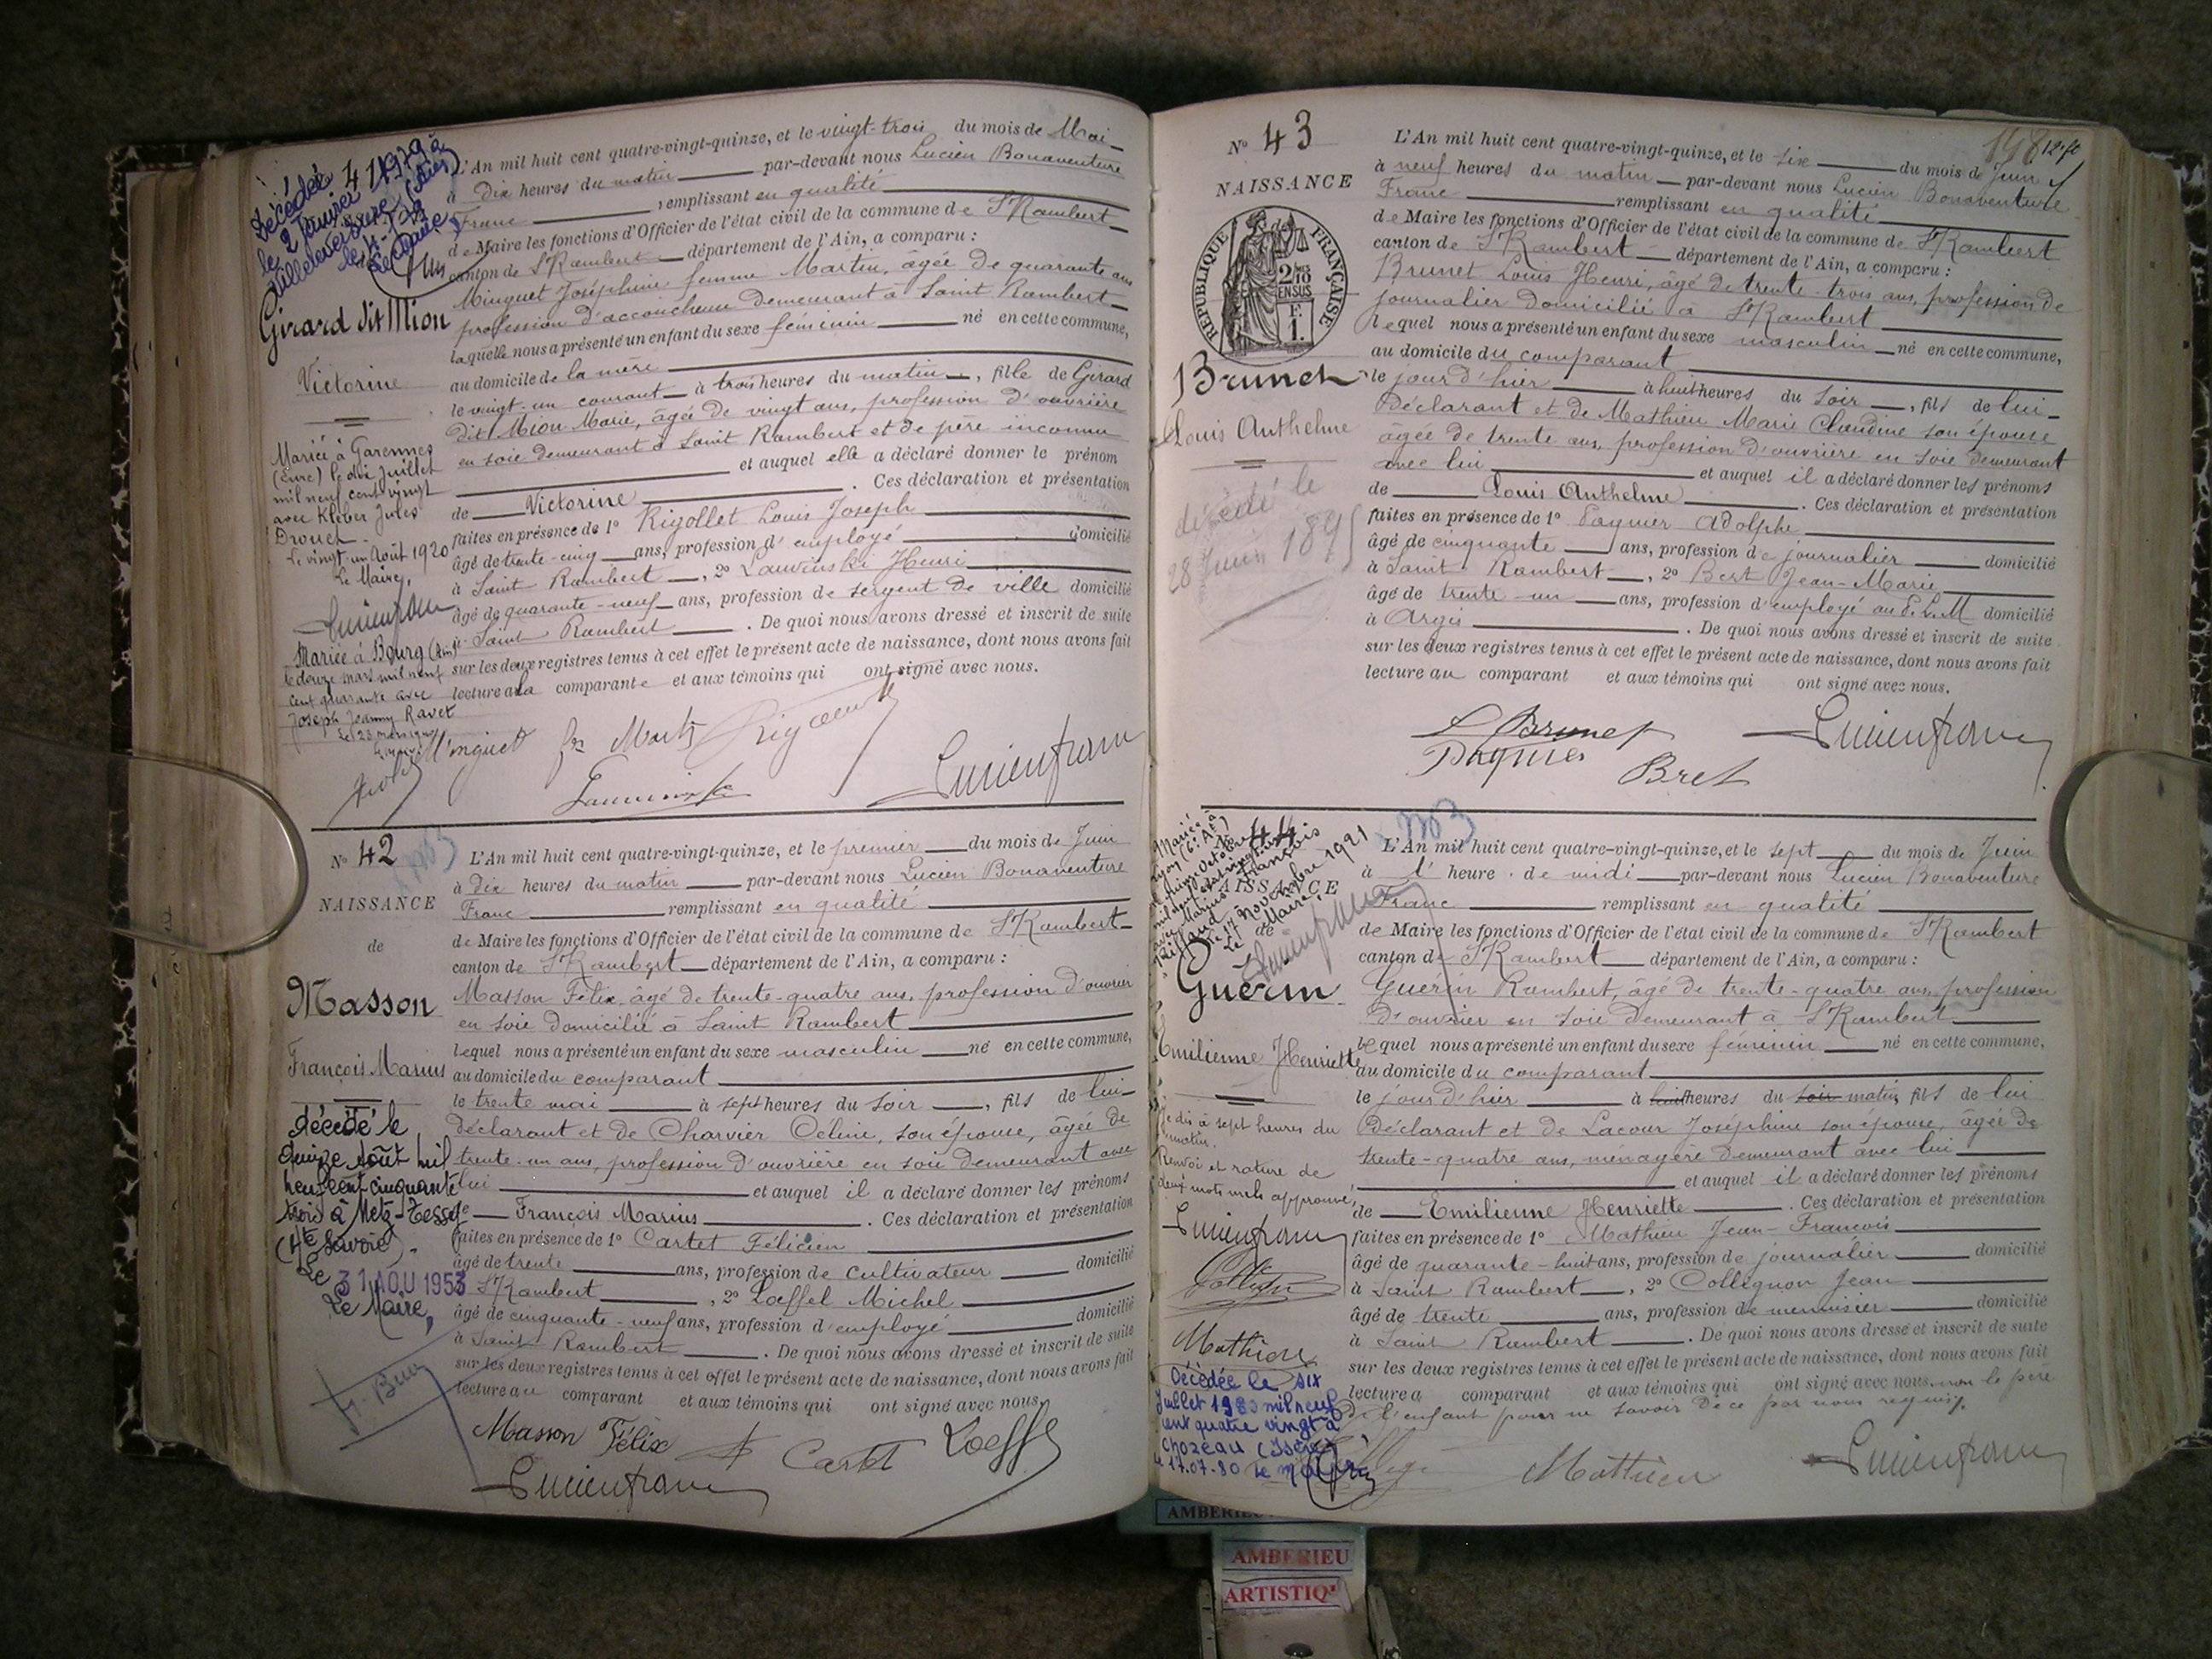 Décédée
le 2 Janvier 1979 à
Girard dit Mion
Victorine
Mariée à Garennes
(Eure) le dix Juillet
mil neuf cent vingt
avec Kléber Jules
Drouet.
Le vingt-un Août 1920
Le Maire,
Lucien franc
Mariée à Bourg (Ain)
le douze mars mil neuf
cent quarante avec
Joseph Jeanny Ravet
L'An mil huit cent quatre-vingt-quinze, et le vingt-trois du mois de Mai
à Dix heures du matin par-devant nous Lucien Bonaventure
Franc remplissant en qualité
de Maire les fonctions d'Officier de l'état civil de la commune de St Rambert
canton de St Rambert département de l'Ain, a comparu :
Minguet Joséphine femme Martin, agée de quarante ans
profession d'accoucheuse demeurant à Saint Rambert
laquelle nous a présenté un enfant du sexe féminin né en cette commune,
au domicile de la mère
le vingt-un courant à trois heures du matin, fille de Girard
dit Mion Marie, âgée de vingt ans, profession d'ouvrière
en soie demeurant à Saint Rambert et de père inconnu
et auquel elle a déclaré donner le prénom
de Victorine. Ces déclaration et présentation
faites en présence de 1° Rigollet Louis Joseph
âgé de trente-cinq ans, profession d'employé domicilié
à Saint Rambert, 2° Lauvinski Henri
âgé de quarante-neuf ans, profession de sergent de ville domicilié
à Saint Rambert. De quoi nous avons dressé et inscrit de suite
sur les deux registres tenus à cet effet le présent acte de naissance, dont nous avons fait
lecture à la comparante et aux témoins qui ont signé avec nous.
Minguet fe Martin
Lucien franc
N° 42
NAISSANCE
de
Masson
François Marius
décédé le
quinze Août mil
neuf cent cinquante
trois à Metz-Tessy
(Hte Savoie).
Le 31 AOU 1953
Le Maire,
L'An mil huit cent quatre-vingt-quinze, et le premier du mois de Juin
à Dix heures du matin par-devant nous Lucien Bonaventure
Franc remplissant en qualité
de Maire les fonctions d'Officier de l'état civil de la commune de St Rambert
canton de St Rambert département de l'Ain, a comparu :
Masson Félix, âgé de trente-quatre ans, profession d'ouvrier
en soie domicilié à Saint Rambert
lequel nous a présenté un enfant du sexe masculin né en cette commune,
au domicile du comparant
le trente mai à sept heures du soir, fils de lui
déclarant et de Charvier Céline, son épouse, âgée de
trente-un ans, profession d'ouvrière en soie demeurant avec
lui et auquel il a déclaré donner les prénoms
de François Marius. Ces déclaration et présentation
faites en présence de 1° Cartet Félicien
âgé de trente ans, profession de cultivateur domicilié
à St Rambert, 2° Loeffel Michel
âgé de cinquante-neuf ans, profession d'employé domicilié
à Saint Rambert. De quoi nous avons dressé et inscrit de suite
sur les deux registres tenus à cet effet le présent acte de naissance, dont nous avons fait
lecture au comparant et aux témoins qui ont signé avec nous.
Masson Félix Cartet Loeffel
Lucien franc
N° 43
NAISSANCE
REPUBLIQUE FRANÇAISE
2/10 EN SUS
F. 1.
Brunet
Louis Anthelme
décédé le
28 Juin 1895
L'An mil huit cent quatre-vingt-quinze, et le six du mois de Juin
à neuf heures du matin par-devant nous Lucien Bonaventure
Franc remplissant en qualité
de Maire les fonctions d'Officier de l'état civil de la commune de St Rambert
canton de St Rambert département de l'Ain, a comparu :
Brunet Louis Henri, âgé de trente-trois ans, profession de
journalier domicilié à St Rambert
lequel nous a présenté un enfant du sexe masculin né en cette commune,
au domicile du comparant
le jour d'hier à huit heures du soir, fils de lui
déclarant et de Mathieu Marie Claudine son épouse
âgée de trente ans, profession d'ouvrière en soie demeurant
avec lui et auquel il a déclaré donner les prénoms
de Louis Anthelme. Ces déclaration et présentation
faites en présence de 1° Paquier Adolphe
âgé de cinquante ans, profession de journalier domicilié
à Saint Rambert, 2° Bert Jean-Marie
âgé de trente-un ans, profession d'employé au P.L.M domicilié
à Argis. De quoi nous avons dressé et inscrit de suite
sur les deux registres tenus à cet effet le présent acte de naissance, dont nous avons fait
lecture au comparant et aux témoins qui ont signé avec nous.
L Brunet Lucien franc
Paquier
N° 44
NAISSANCE
de
Guérin
Emilienne Henriette
Mariée à
Lyon (6e At)
Le 17 Novembre 1921
Le Maire
Lucien franc
Je dis à sept heures du
matin.
Renvoi et rature de
deux mots nuls approuvé,
Lucien franc
Mathieu
Décédée le six
Juillet 1980 mil neuf
cent quatre vingt à
Chozeau (Isère)
le 17.07.80 Le Maire
L'An mil huit cent quatre-vingt-quinze, et le sept du mois de Juin
à l' heure de midi par-devant nous Lucien Bonaventure
Franc remplissant en qualité
de Maire les fonctions d'Officier de l'état civil de la commune de St Rambert
canton de St Rambert département de l'Ain, a comparu :
Guérin Rambert, âgé de trente-quatre ans, profession
d'ouvrier en soie demeurant à St Rambert
lequel nous a présenté un enfant du sexe féminin né en cette commune,
au domicile du comparant
le jour d'hier à huit heures du soir matin fils de lui
déclarant et de Lacour Joséphine son épouse, âgée de
trente-quatre ans, ménagère demeurant avec lui
et auquel il a déclaré donner les prénoms
de Emilienne Henriette. Ces déclaration et présentation
faites en présence de 1° Mathieu Jean-François
âgé de quarante-huit ans, profession de journalier domicilié
à Saint Rambert, 2° Collignon Jean
âgé de trente ans, profession de menuisier domicilié
à Saint Rambert. De quoi nous avons dressé et inscrit de suite
sur les deux registres tenus à cet effet le présent acte de naissance, dont nous avons fait
lecture a comparant et aux témoins qui ont signé avec nous non le père
de l'enfant pour ne savoir de ce par nous requis.
Mathieu Lucien franc
AMBERIEU
ARTISTIQ